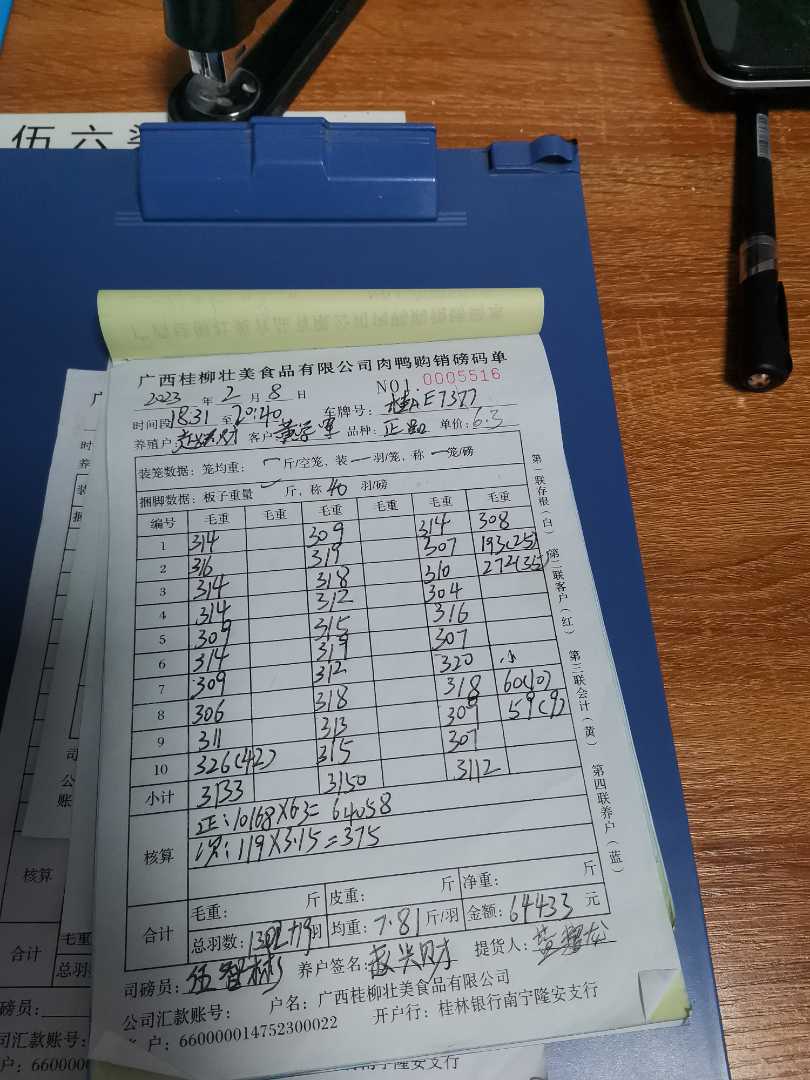 伍六
广西桂柳壮美食品有限公司肉鸭购销磅码单
2023 年 2 月 8 日 NO1. 0005516
时间段 18:31 至 20:40 车牌号: 桂AE7377
养殖户 客户 品种: 正品 单价: 6.3
装笼数据: 笼均重: 一 斤/空笼, 装 一 羽/笼, 称 一 笼/磅
捆脚数据: 板子重量 斤, 称 40 羽/磅
编号 毛重 毛重 毛重 毛重 毛重 毛重
1 314 309 314 308
2 316 319 307 193(25)
3 314 318 310 272(35)
4 314 312 304
5 309 315 316
6 314 319 307
7 309 312 320 小
8 306 318 318 60(10)
9 311 313 309 59(9)
10 326(42) 315 307
小计 3133 3150 3112
核算 正: 10168×6.3= 64058
次: 119×3.15=375
合计 毛重: 斤 皮重: 斤 净重: 斤
总羽数: 羽 均重: 7.81 斤/羽 金额: 64433 元
司磅员: 伍智彬 养户签名: 提货人:
公司汇款账号: 户名: 广西桂柳壮美食品有限公司
户: 660000014752300022 开户行: 桂林银行南宁隆安支行
第一联存根(白) 第二联客户(红) 第三联会计(黄) 第四联养户(蓝)
核算
合计 毛重
总羽
员:
司汇款账号:
户: 6600000
南宁隆安支行